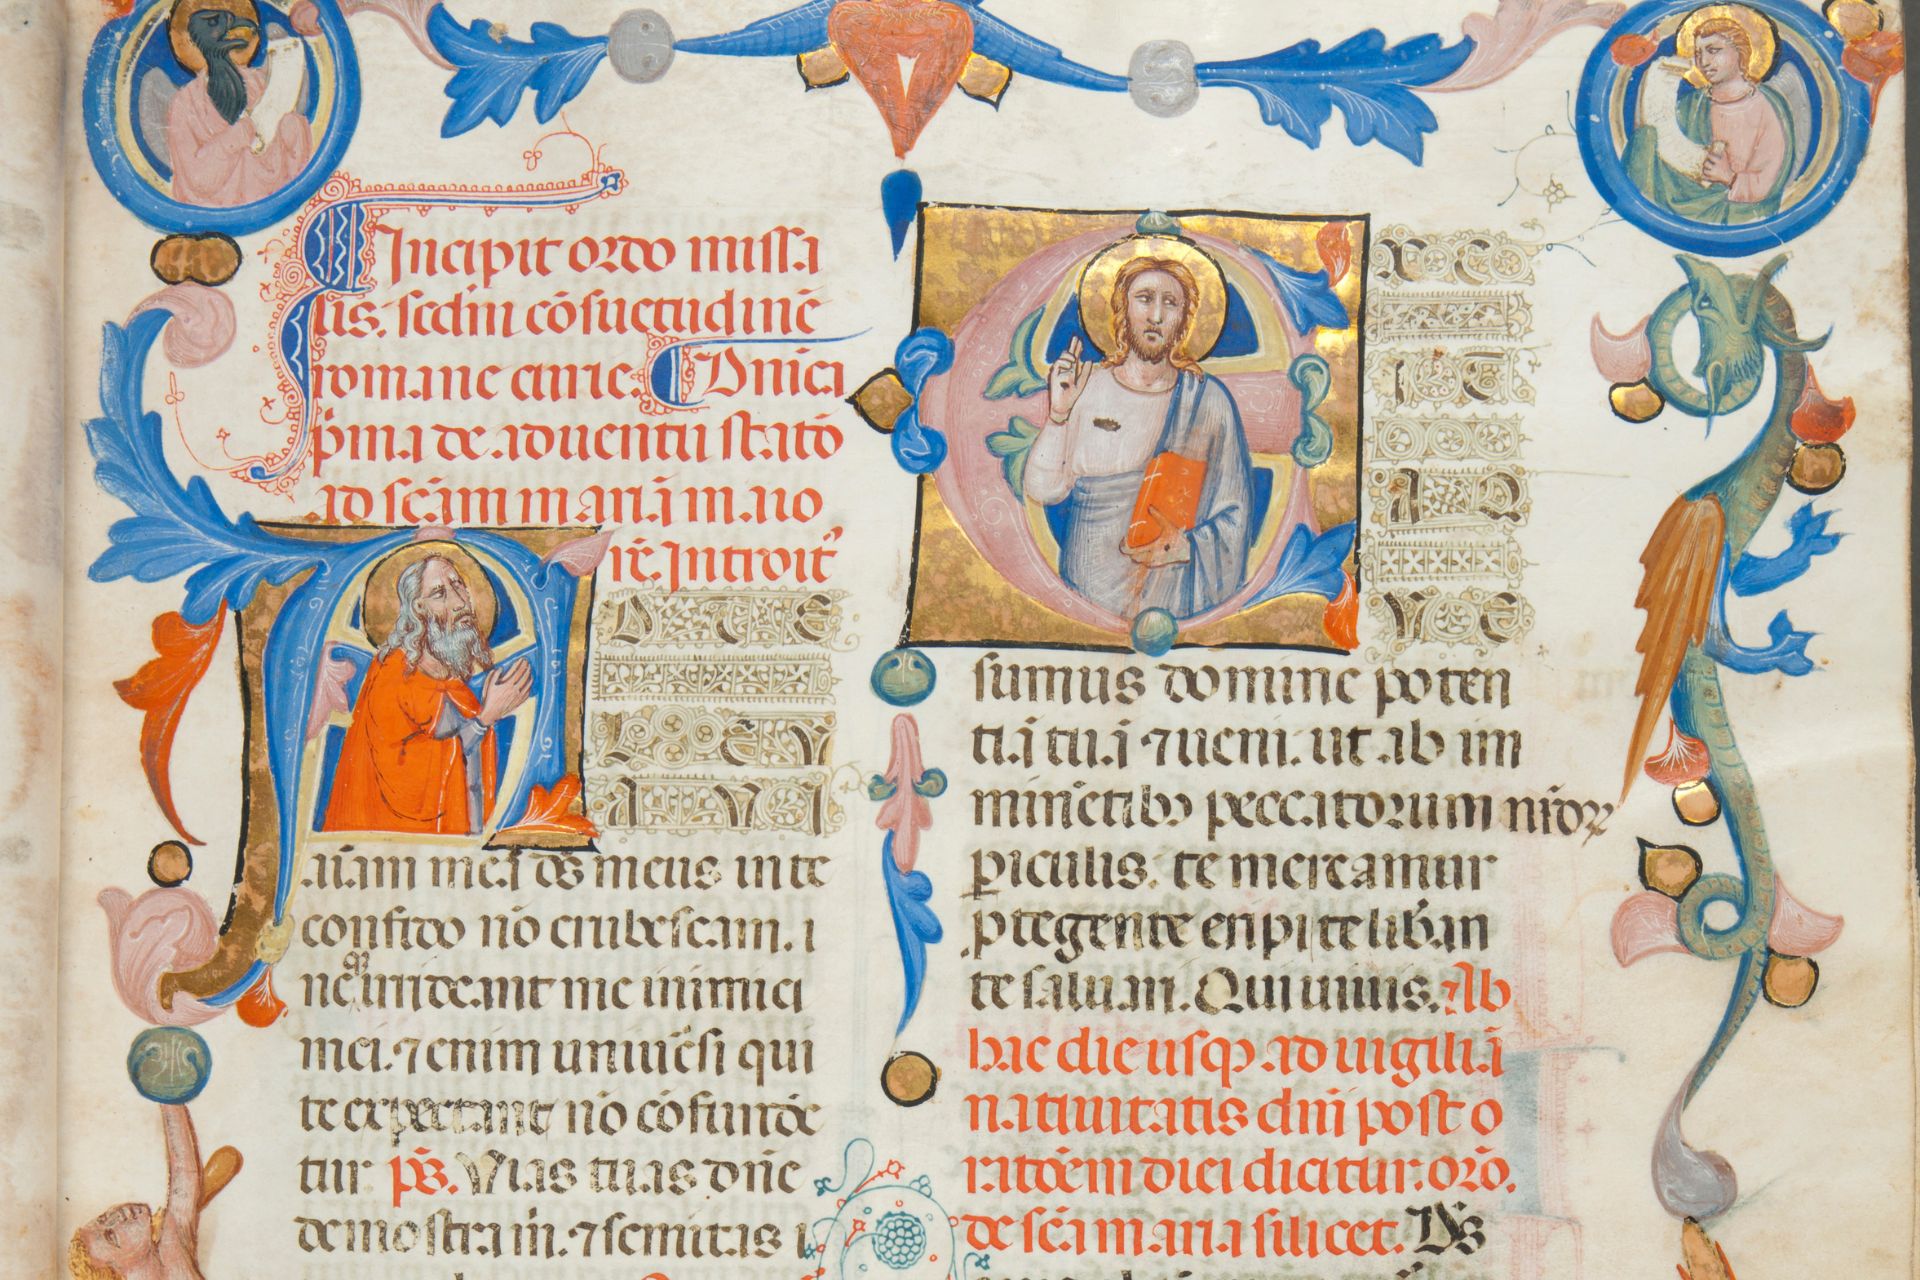 Incipit ordo missa
lis. scd̄m cōsuetudinē
romane curie. Dn̄ica
p̄ma de aduentu statō
ad sc̄am mariā maio
rē. Introit᾽
D TE
LEV
AVI
aīam meā ds̄ meus in te
confido nō erubescam. i
nēqꝫ irrideant me inimici
mei. ⁊ enim uniuēsi qui
te expectant nō cōfundē
tur p̄s. Vias tuas dn̄e
demostra m̄. ⁊ semitas
XCI
TA
QVE
sumus domine poten
tiā tuā ⁊ ueni. ut ab im
minētibꝰ peccatorum nr̄oꝝ
ꝑiculis. te mereamur
ꝓtegente eripi te liƀan
te saluari. Qui uiuis. Ab
hac die usqꝫ ad uigiliā
natiuitatis dn̄i post o
ratōem diei dicitur. orō.
de sc̄a maria silicet. Ds̄